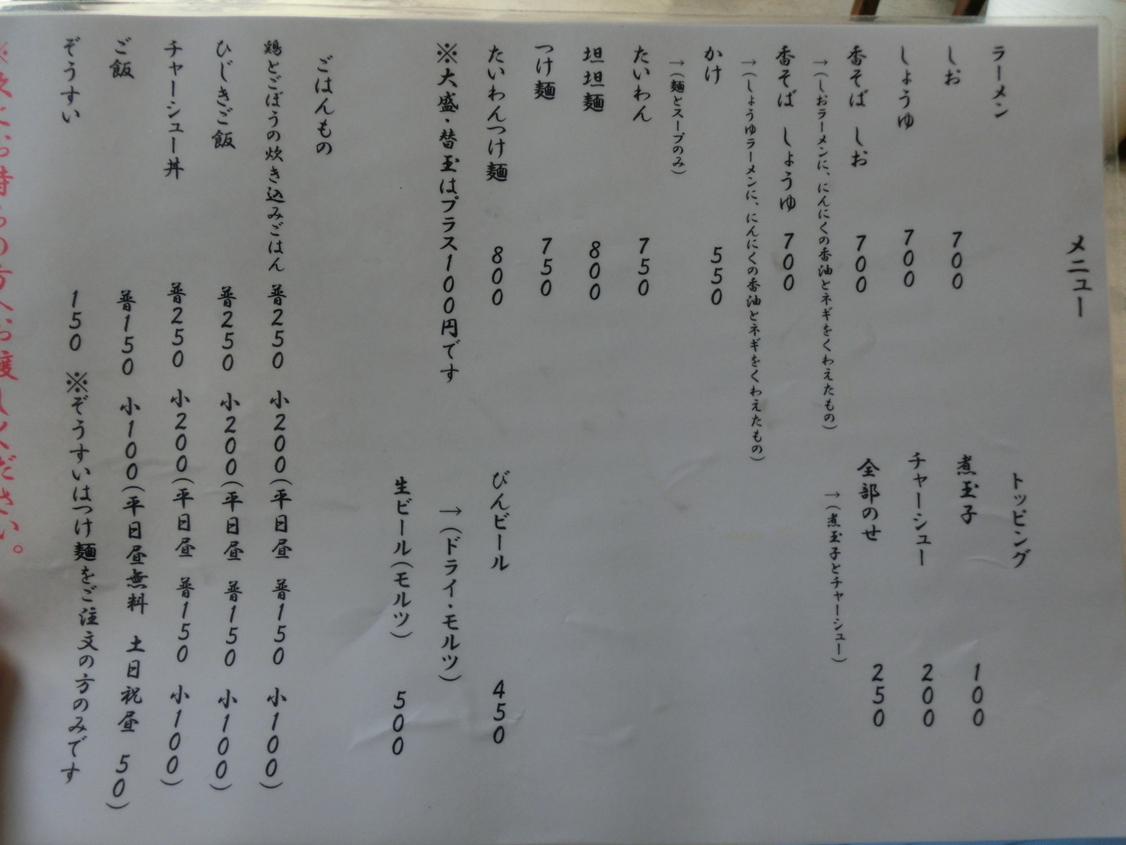 メニュー
ラーメン
しお 700
しょうゆ 700
香そば しお 700
→(しおラーメンに、にんにくの香油とネギをくわえたもの)
香そば しょうゆ 700
→(しょうゆラーメンに、にんにくの香油とネギをくわえたもの)
かけ 550
→(麺とスープのみ)
たいわん 750
坦坦麺 800
つけ麺 750
たいわんつけ麺 800
※大盛・替玉はプラス100円です
トッピング
煮玉子 100
チャーシュー 200
全部のせ 250
→(煮玉子とチャーシュー)
びんビール 450
→(ドライ・モルツ)
生ビール(モルツ) 500
ごはんもの
鶏とごぼうの炊き込みごはん 普250 小200(平日昼 普150 小100)
ひじきご飯 普250 小200(平日昼 普150 小100)
チャーシュー丼 普250 小200(平日昼 普150 小100)
ご飯 普150 小100(平日昼無料 土日祝昼 50)
ぞうすい 150 ※ぞうすいはつけ麺をご注文の方のみです
※次にお待ちの方へお渡しください。